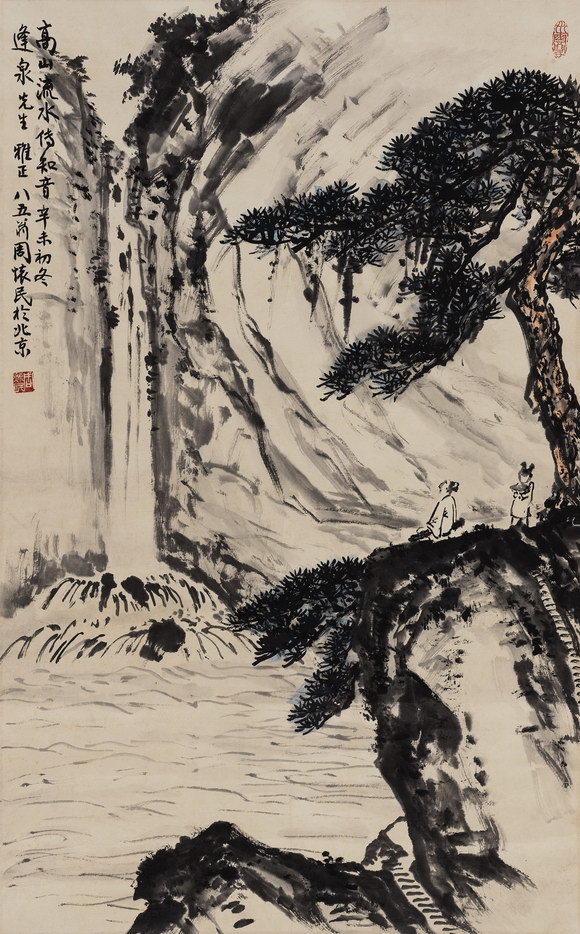 高山流水传知音辛未初冬
逢泉先生雅正八五叟周怀民於北京